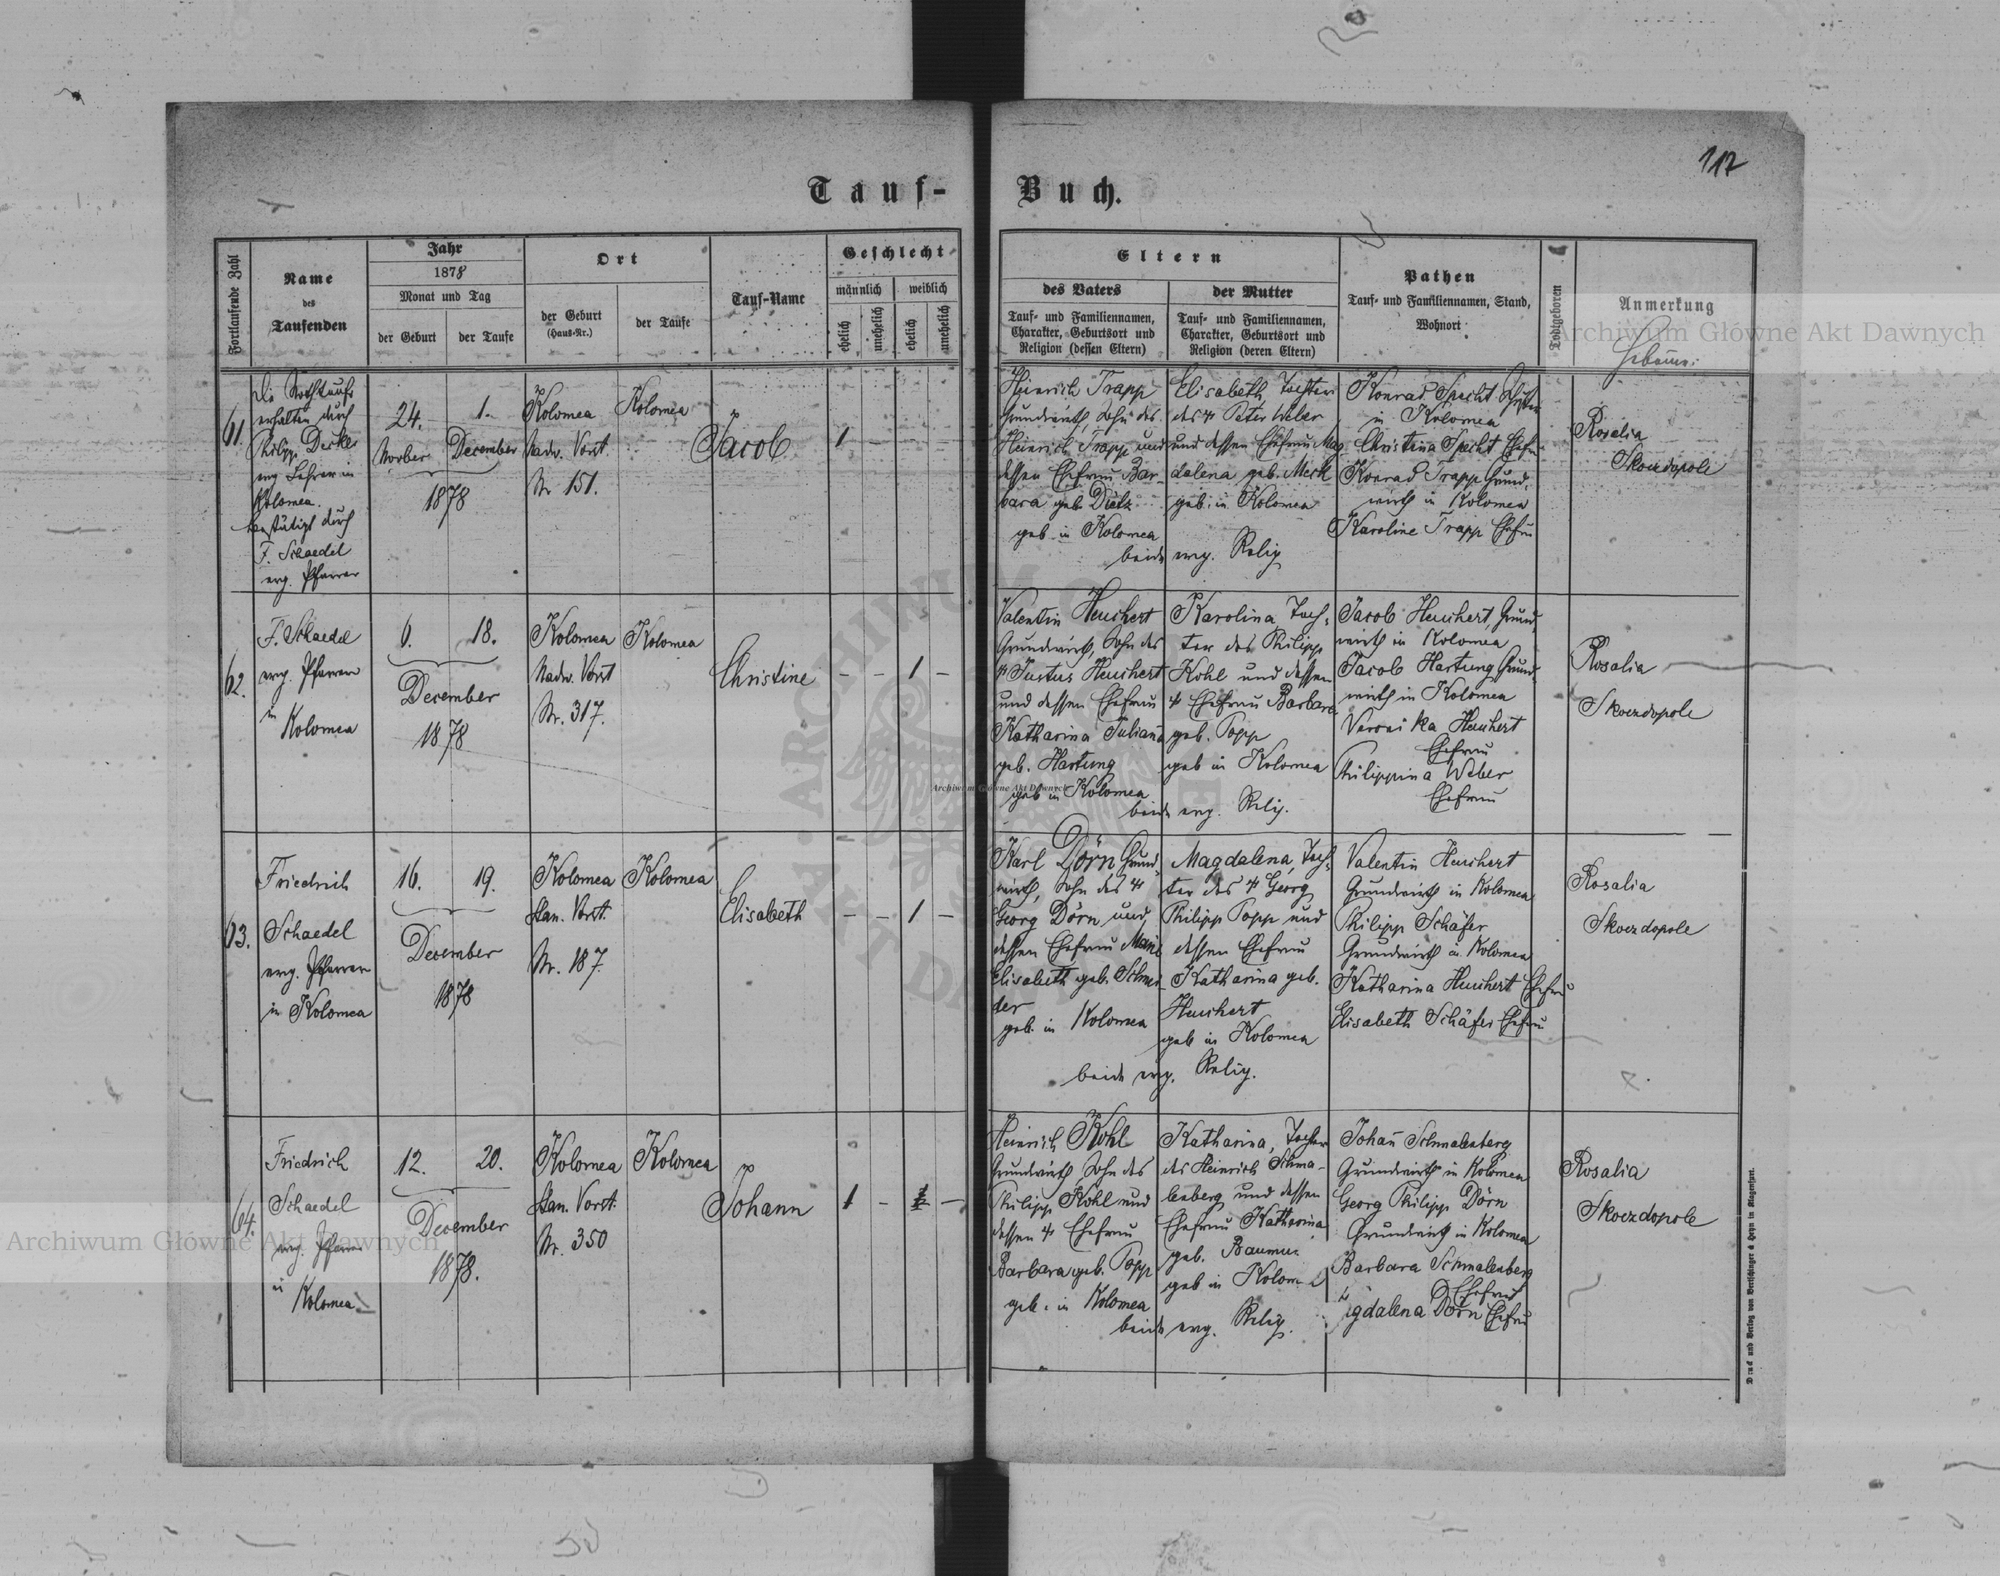 117
Tauf-Buch.
Fortlaufende Zahl
Name
des
Taufenden
Jahr
1878
Monat und Tag
der Geburt
der Taufe
Ort
der Geburt
(Haus-Nr.)
der Taufe
Tauf-Name
Geschlecht
männlich
weiblich
ehelich
unehelich
ehelich
unehelich
Eltern
des Vaters
Tauf- und Familiennamen,
Charakter, Geburtsort und
Religion (dessen Eltern)
der Mutter
Tauf- und Familiennamen,
Charakter, Geburtsort und
Religion (deren Eltern)
Pathen
Tauf- und Familiennamen, Stand,
Wohnort
Todtgeboren
Anmerkung
Archiwum Główne Akt Dawnych
Hebamme:
61.
Die Nothtaufe
erhalten durch
Philipp Decker
evg. Lehrer in
Kolomea.
bestätigt durch
F. Schaedel
evg. Pfarrer
24.
November
1.
December
1878
Kolomea
Nadw. Vorst.
Nr 151.
Kolomea
Jacob
1 - - -
Heinrich Trapp
Grundwirth, Sohn des
Heinrich Trapp und
dessen Ehefrau Bar-
bara geb. Dietz
geb. in Kolomea
Elisabeth, Tochter
des † Peter Weber
und dessen Ehefrau Mag
dalena geb. Merk
geb. in Kolomea
beide evg. Relig
Konrad Specht
in Kolomea
Christina Specht Ehefr
Konrad Trapp Grund-
wirth in Kolomea
Karoline Trapp Ehefrau
Rosalia
Skoczdopole
62.
F. Schaedel
evg. Pfarrer
in
Kolomea
6.
18.
December
1878
Kolomea
Nadw. Vorst
Nr. 317.
Kolomea
Christine
- - 1 -
Valentin Heuchert
Grundwirth, Sohn des
† Justus Heuchert
und dessen Ehefrau
Katharina Juliana
geb. Hartung
geb in Kolomea
Karolina, Toch-
ter des Philipp
Kohl und dessen
† Ehefrau Barbara
geb. Popp
geb in Kolomea
beide evg. Relig.
Jacob Heuchert, Grund-
wirth in Kolomea
Jacob Hartung Grund-
wirth in Kolomea
Veronika Heuchert
Ehefrau
Philippina Weber
Ehefrau
Rosalia
Skoczdopole
63.
Friedrich
Schaedel
evg. Pfarrer
in Kolomea
16.
19.
December
1878
Kolomea
Stan. Vorst.
Nr. 187.
Kolomea
Elisabeth
- - 1 -
Karl Dörn, Grund-
wirth, Sohn des †
Georg Dörn und
dessen Ehefrau Maria
Elisabeth geb. Schnei-
der
geb. in Kolomea
Magdalena, Toch-
ter des † Georg
Philipp Popp und
dessen Ehefrau
Katharina geb.
Heuchert
geb in Kolomea
beide evg. Relig.
Valentin Heuchert
Grundwirth in Kolomea
Philipp Schäfer
Grundwirth in Kolomea
Katharina Heuchert Ehefrau
Elisabeth Schäfer Ehefrau
Rosalia
Skoczdopole
64.
Friedrich
Schaedel
evg. Pfarrer
in
Kolomea
12.
20.
December
1878.
Kolomea
Stan. Vorst.
Nr. 350
Kolomea
Johann
1 - -
Heinrich Kohl
Grundwirth Sohn des
Philipp Kohl und
dessen † Ehefrau
Barbara geb. Popp
geb. in Kolomea
Katharina, Tochter
des Heinrich Schma-
lenberg und dessen
Ehefrau Katharina
geb.
geb in Kolomea
beide evg. Relig.
Johan̄ Schmalenberg
Grundwirth in Kolomea
Georg Philipp Dörn
Grundwirth in Kolomea
Barbara Schmalenberg
Ehefrau
Dörn Ehefrau
Rosalia
Skoczdopole
Archiwum Główne Akt Dawnych
Archiwum Główne Akt Dawnych
Druck und Verlag von Bertschinger & Heyn in Klagenfurt.